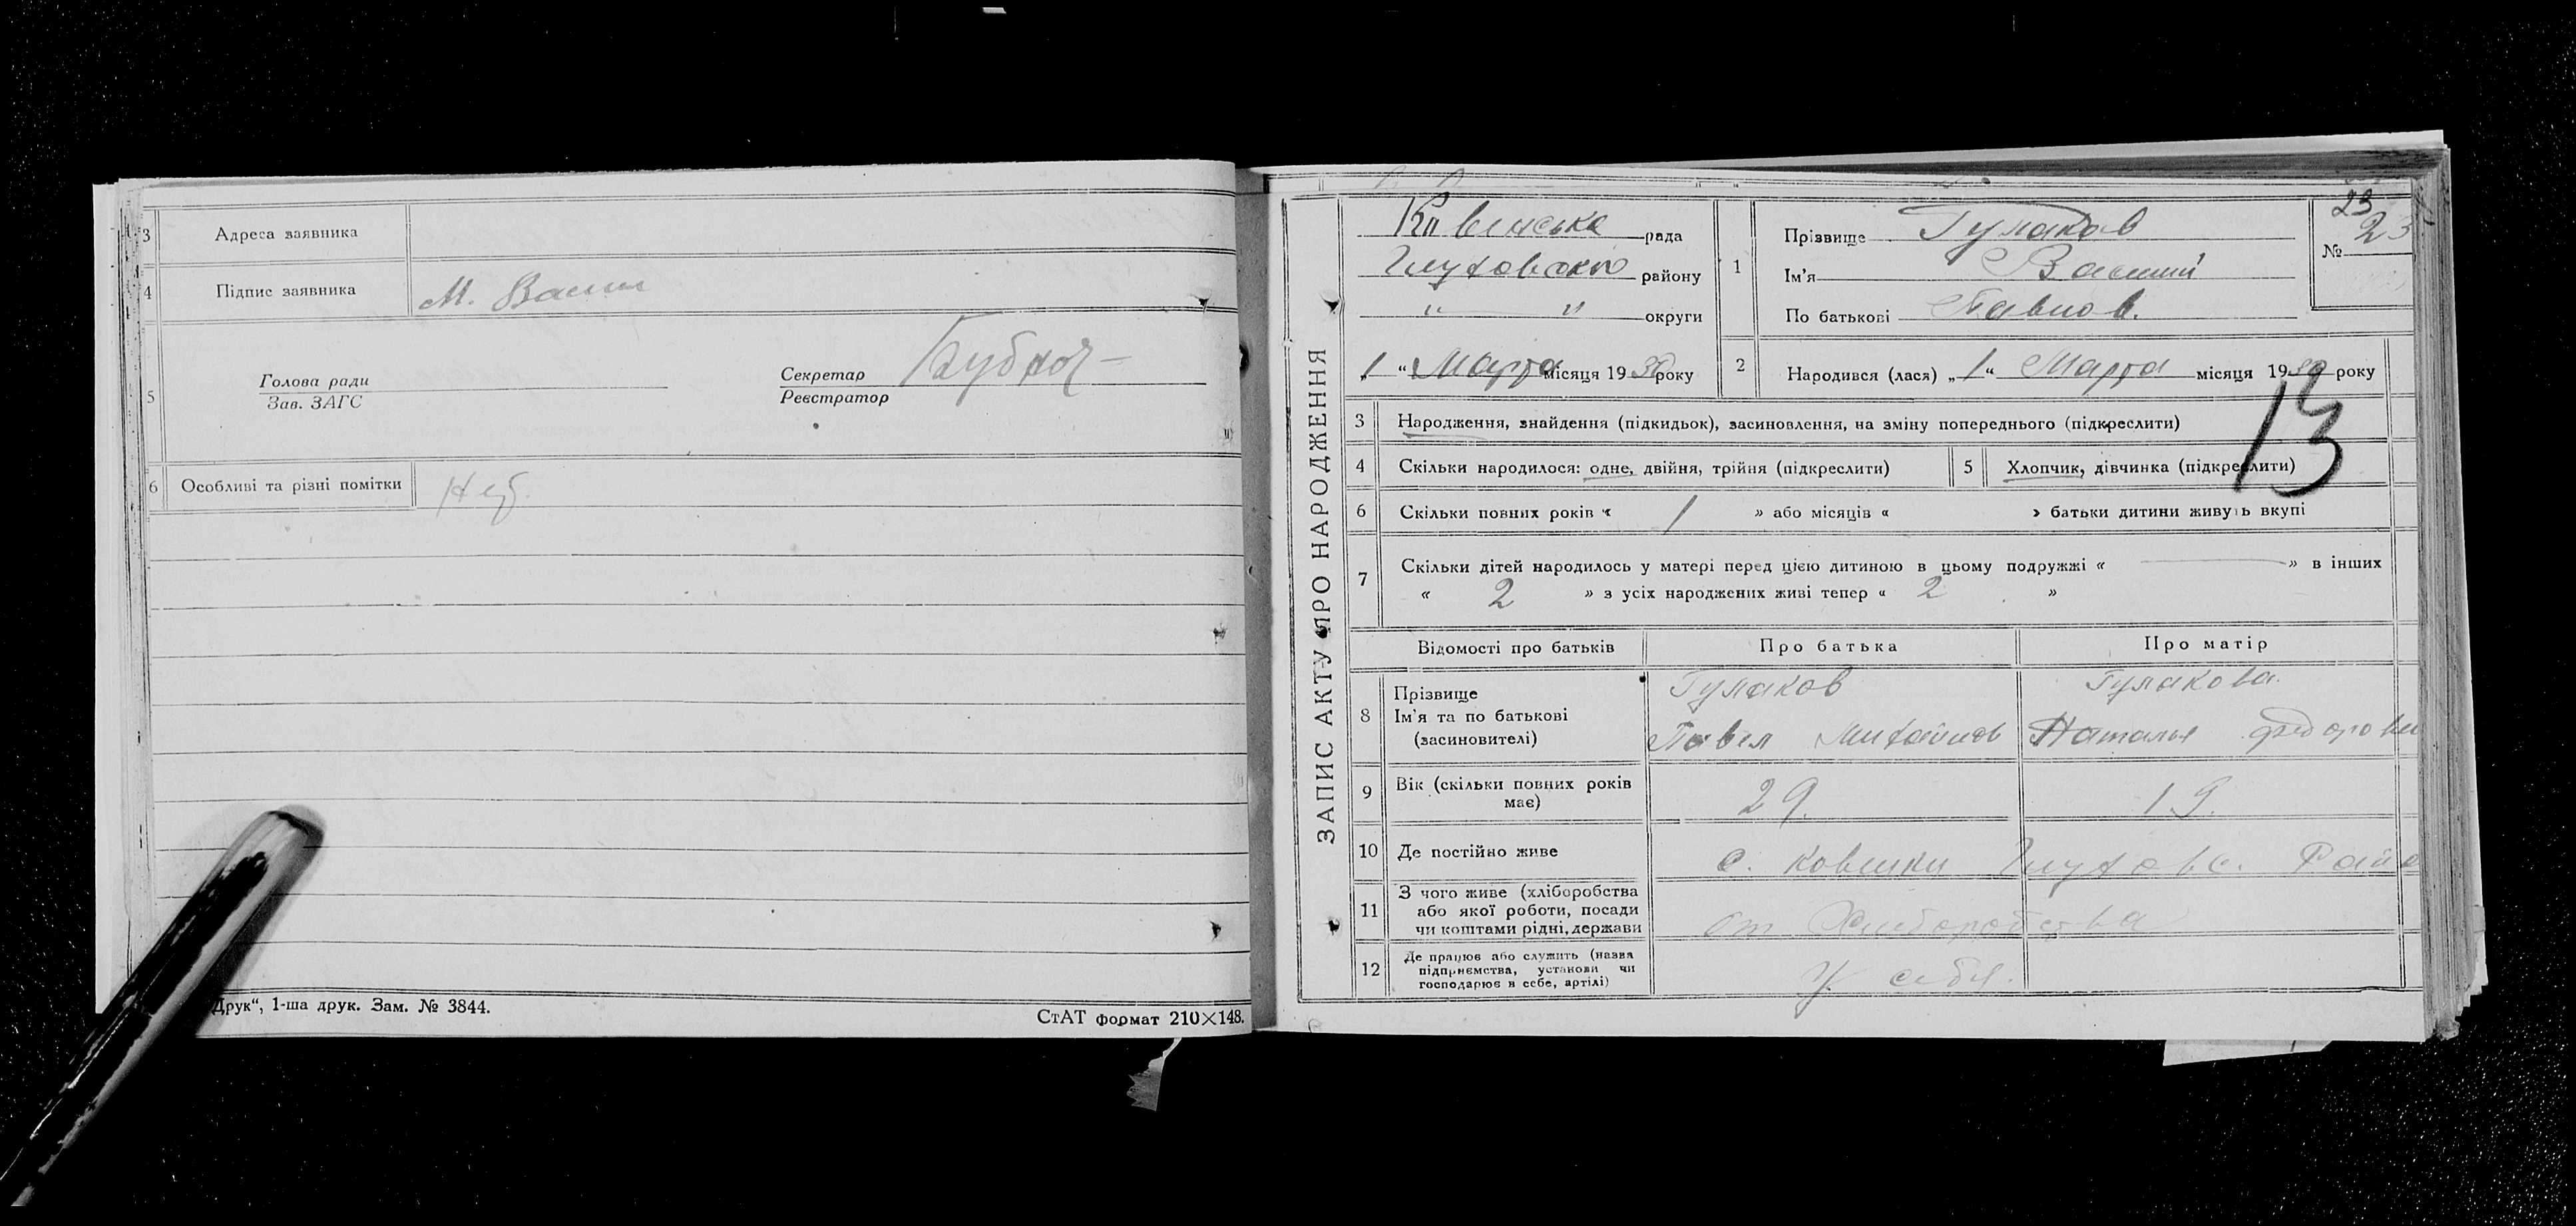 3 Адреса заявника
4 Підпис заявника М.
5 Голова ради
Зав. ЗАГС
Секретар
Реєстратор
6 Особливі та різні помітки
Друк“, 1-ша друк. Зам. № 3844.
СтАТ формат 210×148.
ЗАПИС АКТУ ПРО НАРОДЖЕННЯ
рада
району
" " округи
„1“ Марта місяця 1930 року
1 Прізвище Гулаков
Ім'я Василий
По батькові Павлов.
23
№ 23
2 Народився (лася) „1“ Марта місяця 1930 року
13
3 Народження, знайдення (підкидьок), засиновлення, на зміну попереднього (підкреслити)
4 Скільки народилося: одне, двійня, трійня (підкреслити)
5 Хлопчик, дівчинка (підкреслити)
6 Скільки повних років « 1 » або місяців « » батьки дитини живуть вкупі
7 Скільки дітей народилось у матері перед цією дитиною в цьому подружжі « — » в інших
« 2 » з усіх народжених живі тепер « 2 »
Відомості про батьків Про батька Про матір
8 Прізвище Гулаков Гулакова.
Ім'я та по батькові
(засиновителі) Павел Михайлов Наталья
9 Вік (скільки повних років
має) 29. 19.
10 Де постійно живе с. Ковенки Глуховс. Райо
11 З чого живе (хліборобства
або якої роботи, посади
чи коштами рідні, держави от Хлиборобства
12 Де працює або служить (назва
підприємства, установи чи
господарює в себе, артілі) У себя.